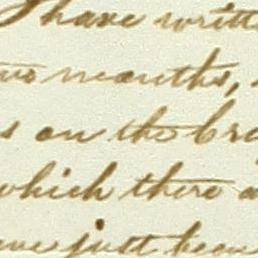 I have writt
two months,
s on the Cro
which there a
ave just been